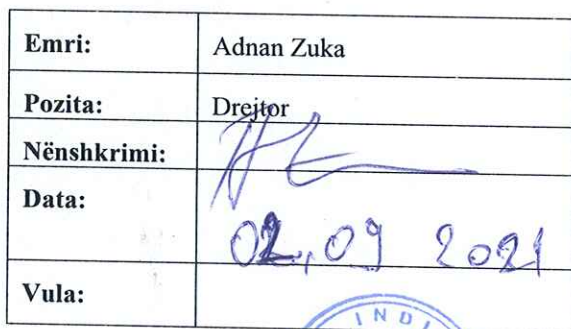 Emri: Adnan Zuka
Pozita: Drejtor
Nënshkrimi:
Data: 02.09 2021
Vula:
INDI